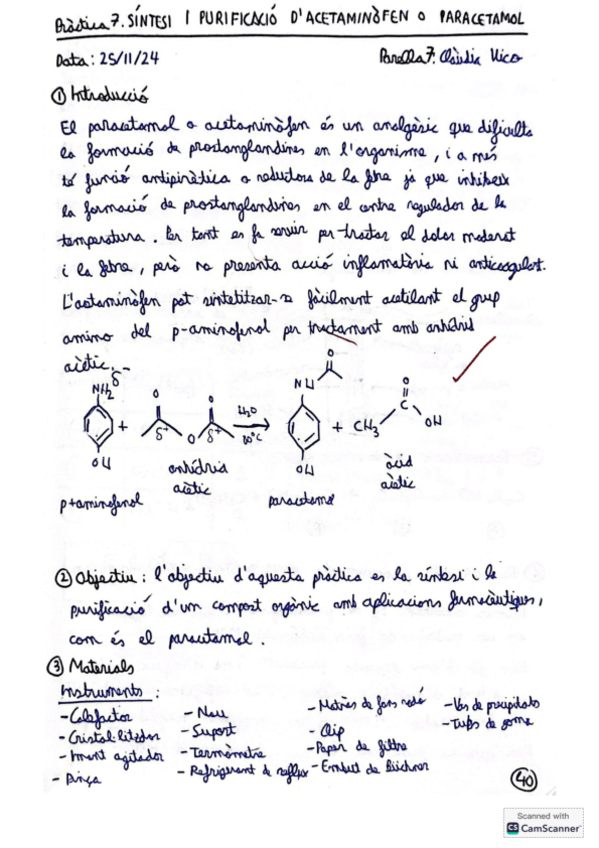 Pràctica 7. SÍNTESI I PURIFICACIÓ D'ACETAMINÒFEN O PARACETAMOL
Data: 25/11/24
Parella 7: Clàudia Vico
① Introducció
El paracetamol o acetaminòfen és un analgèsic que dificulta
la formació de prostanglandines en l'organisme, i a més
té funció antipirètica o reductora de la febre ja que inhibeix
la formació de prostanglandines en el centre regulador de la
temperatura. Per tant es fa servir per tractar el dolor moderat
i la febre, però no presenta acció inflamatòria ni anticoagulant.
L'acetaminòfen pot sintetitzar-se fàcilment acetilant el grup
amino del p-aminofenol per tractament amb anhídrid
acètic.
δ-
NH2
O
O
O
NH
O
+
δ+
O
δ+
H2O
80°C
+
CH3
C
OH
OH
OH
p-aminofenol
anhídrid
acètic
paracetamol
àcid
acètic
② Objectiu: l'objectiu d'aquesta pràctica es la síntesi i la
purificació d'um compost orgànic amb aplicacions farmacèutiques,
com és el paracetamol.
③ Materials
Instruments:
- Calefactor
- Cristal·litzador
- Imant agitador
- Pinça
- Nou
- Suport
- Termòmetre
- Refrigerant de reflux
- Matràs de fons rodó
- Clip
- Paper de filtre
- Embut de Büchner
- Vas de precipitats
- Tubs de goma
40
Scanned with
CS CamScanner